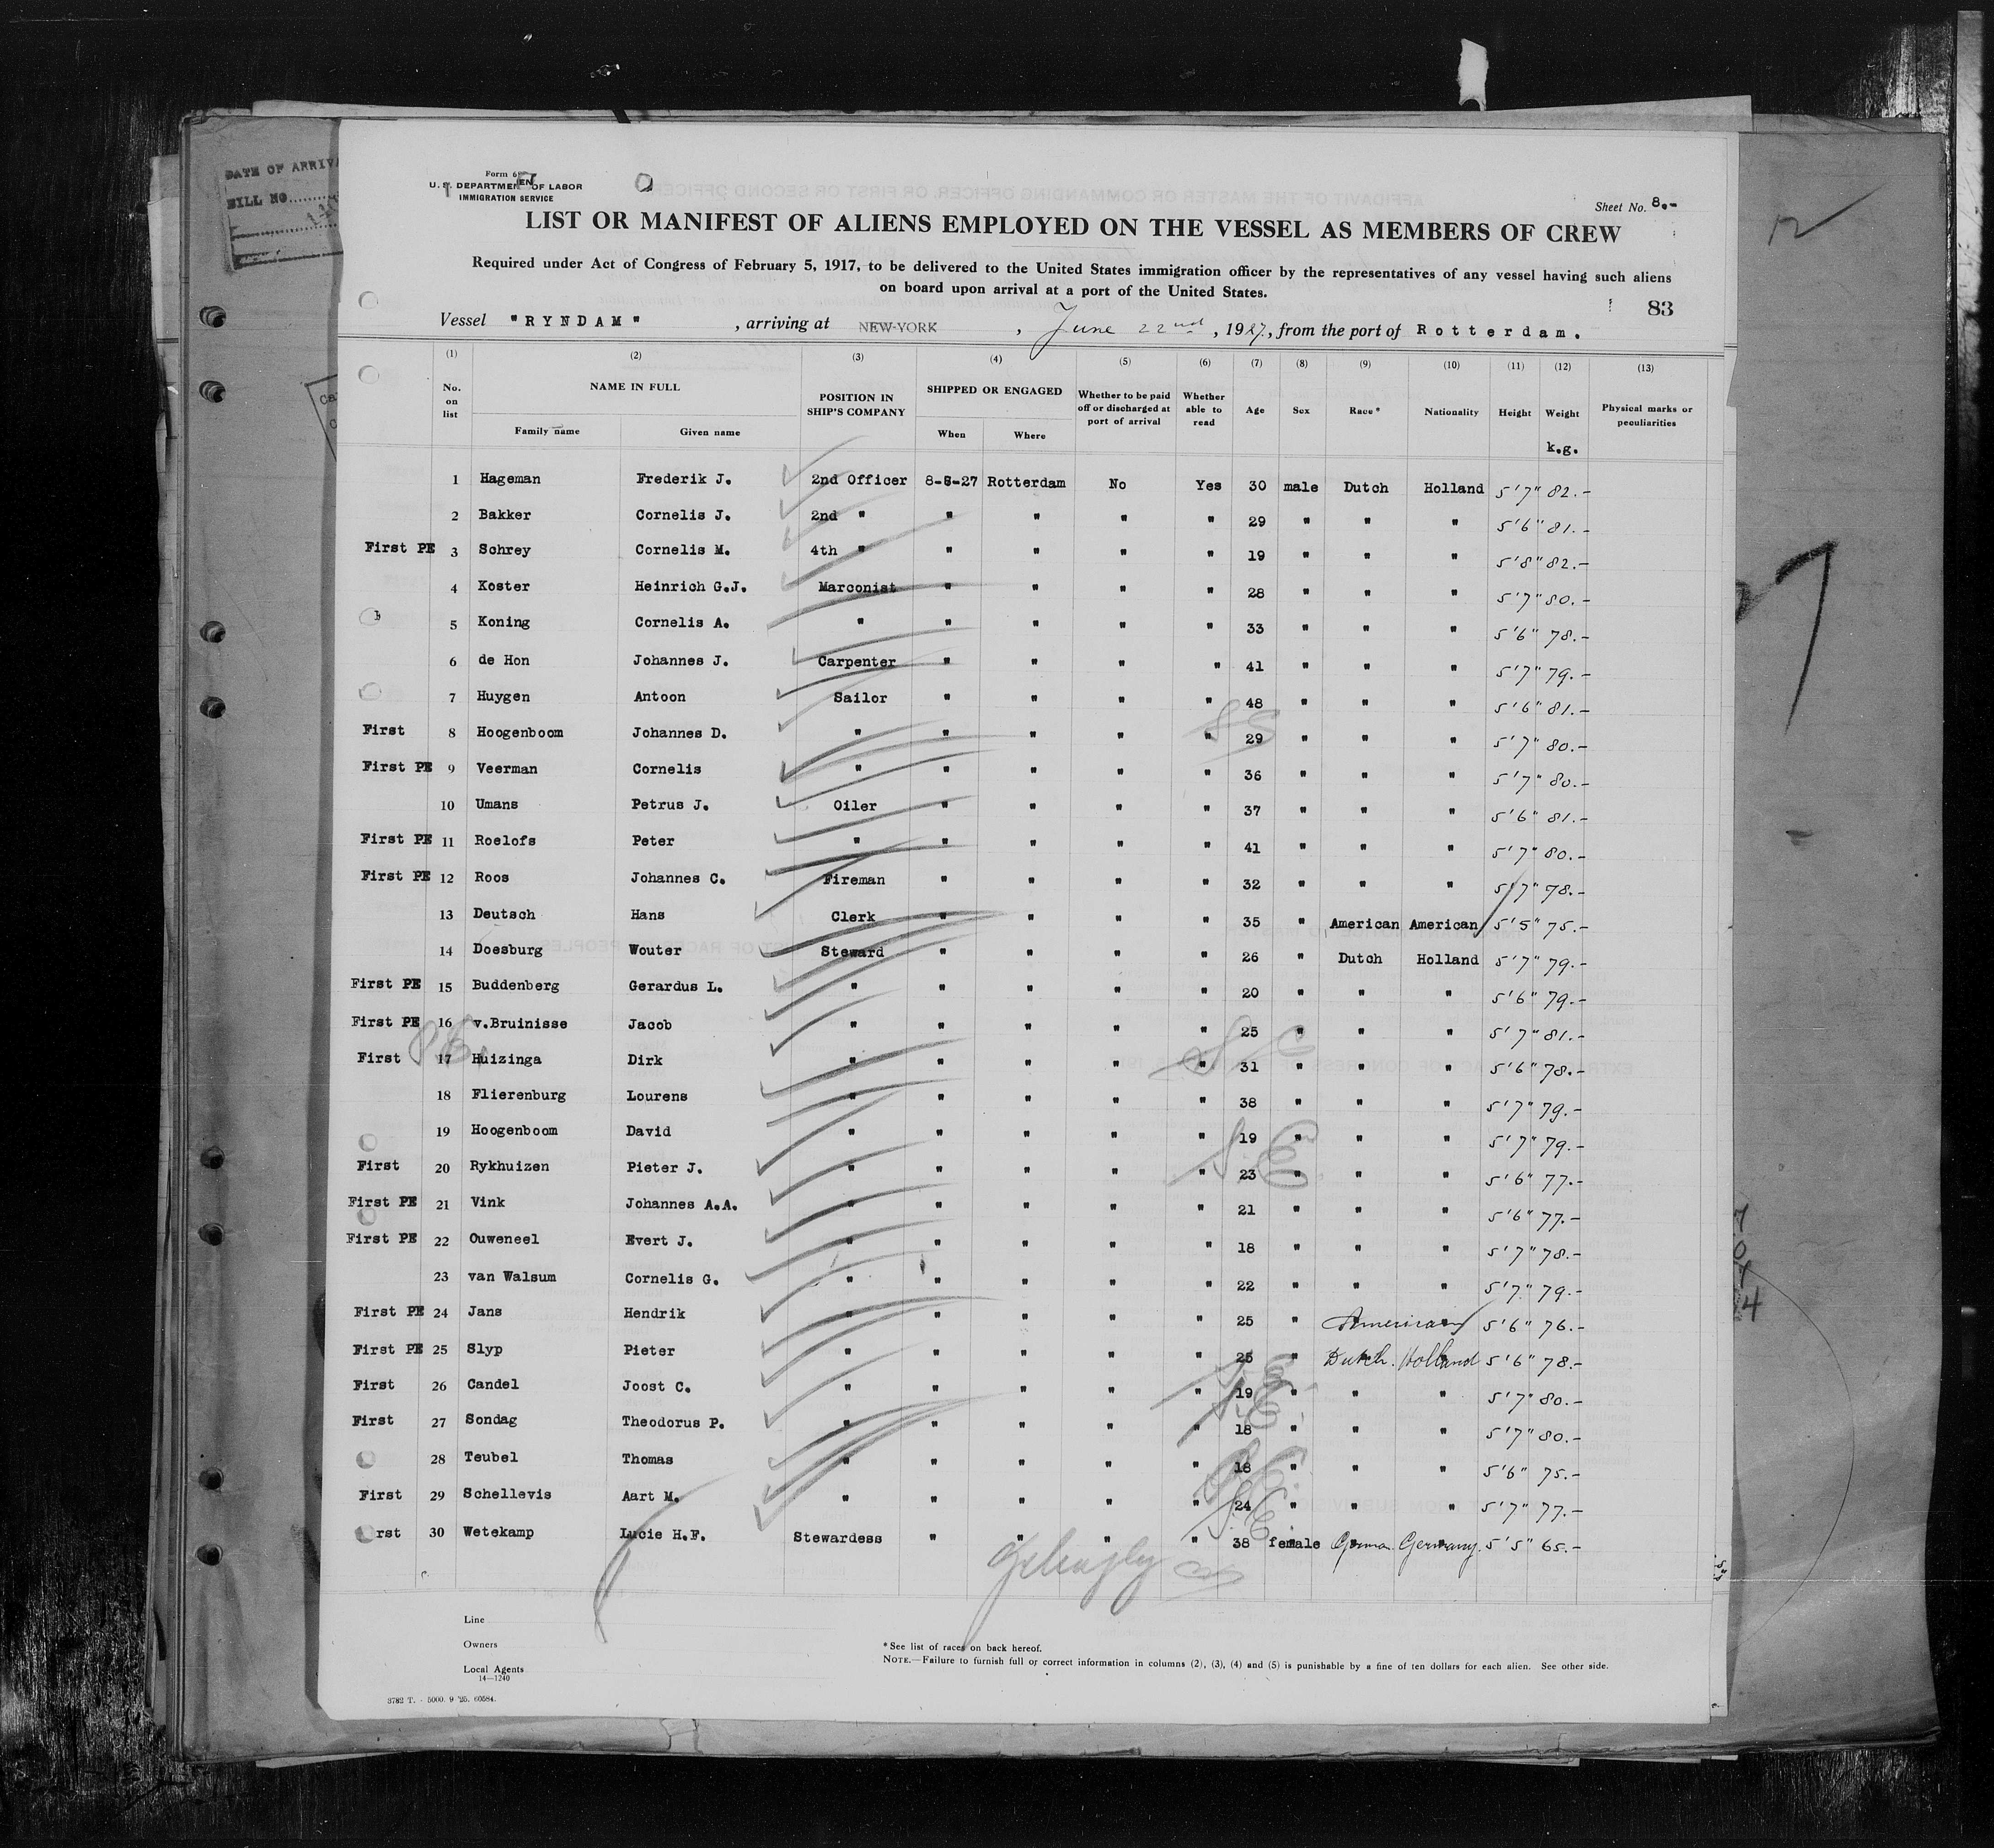 DATE OF ARRIVA
BILL NO.
Form 6
U.S. DEPARTMENT OF LABOR
IMMIGRATION SERVICE
Sheet No. 8.-
LIST OR MANIFEST OF ALIENS EMPLOYED ON THE VESSEL AS MEMBERS OF CREW
Required under Act of Congress of February 5, 1917, to be delivered to the United States immigration officer by the representatives of any vessel having such aliens
on board upon arrival at a port of the United States.
83
Vessel "RYNDAM", arriving at NEW-YORK, June 22nd, 1927, from the port of Rotterdam.
(1) (2) (3) (4) (5) (6) (7) (8) (9) (10) (11) (12) (13)
No. on list NAME IN FULL Family name Given name POSITION IN SHIP'S COMPANY SHIPPED OR ENGAGED When Where Whether to be paid off or discharged at port of arrival Whether able to read Age Sex Race* Nationality Height Weight Physical marks or peculiarities
k.g.
1 Hageman Frederik J. 2nd Officer 8-6-27 Rotterdam No Yes 30 male Dutch Holland 5'7" 82.-
2 Bakker Cornelis J. 2nd " " " " " 29 " " " 5'6" 81.-
First PE 3 Schrey Cornelis M. 4th " " " " " 19 " " " 5'8" 82.-
4 Koster Heinrich G.J. Marconist " " " " 28 " " " 5'7" 80.-
5 Koning Cornelis A. " " " " " 33 " " " 5'6" 78.-
6 de Hon Johannes J. Carpenter " " " " 41 " " " 5'7" 79.-
7 Huygen Antoon Sailor " " " " 48 " " " 5'6" 81.-
First 8 Hoogenboom Johannes D. " " " " " 29 " " " 5'7" 80.-
First PE 9 Veerman Cornelis " " " " " 36 " " " 5'7" 80.-
10 Umans Petrus J. Oiler " " " " 37 " " " 5'6" 81.-
First PE 11 Roelofs Peter " " " " " 41 " " " 5'7" 80.-
First PE 12 Roos Johannes C. Fireman " " " " 32 " " " 5'7" 78.-
13 Deutsch Hans Clerk " " " " 35 " American American 5'5" 75.-
14 Doesburg Wouter Steward " " " " 26 " Dutch Holland 5'7" 79.-
First PE 15 Buddenberg Gerardus L. " " " " " 20 " " " 5'6" 79.-
First PE 16 v.Bruinisse Jacob " " " " " 25 " " " 5'7" 81.-
First 17 Huizinga Dirk " " " " " 31 " " " 5'6" 78.-
18 Flierenburg Lourens " " " " " 38 " " " 5'7" 79.-
19 Hoogenboom David " " " " " 19 " " " 5'7" 79.-
First 20 Rykhuizen Pieter J. " " " " " 23 " " " 5'6" 77.-
First PE 21 Vink Johannes A.A. " " " " " 21 " " " 5'6" 77.-
First PE 22 Ouweneel Evert J. " " " " " 18 " " " 5'7" 78.-
23 van Walsum Cornelis G. " " " " " 22 " " " 5'7" 79.-
First PE 24 Jans Hendrik " " " " " 25 " American 5'6" 76.-
First PE 25 Slyp Pieter " " " " " 25 " Dutch. Holland 5'6" 78.-
First 26 Candel Joost C. " " " " " 19 " " " 5'7" 80.-
First 27 Sondag Theodorus P. " " " " " 18 " " " 5'7" 80.-
28 Teubel Thomas " " " " " 18 " " " 5'6" 75.-
First 29 Schellevis Aart M. " " " " " 24 " " " 5'7" 77.-
rst 30 Wetekamp Lucie H.F. Stewardess " " " " 38 female German Germany. 5'5" 65.-
Line
Owners
Local Agents
14—1240
*See list of races on back hereof.
NOTE.—Failure to furnish full or correct information in columns (2), (3), (4) and (5) is punishable by a fine of ten dollars for each alien. See other side.
3782 T. - 5000. 9 '25. 60584.